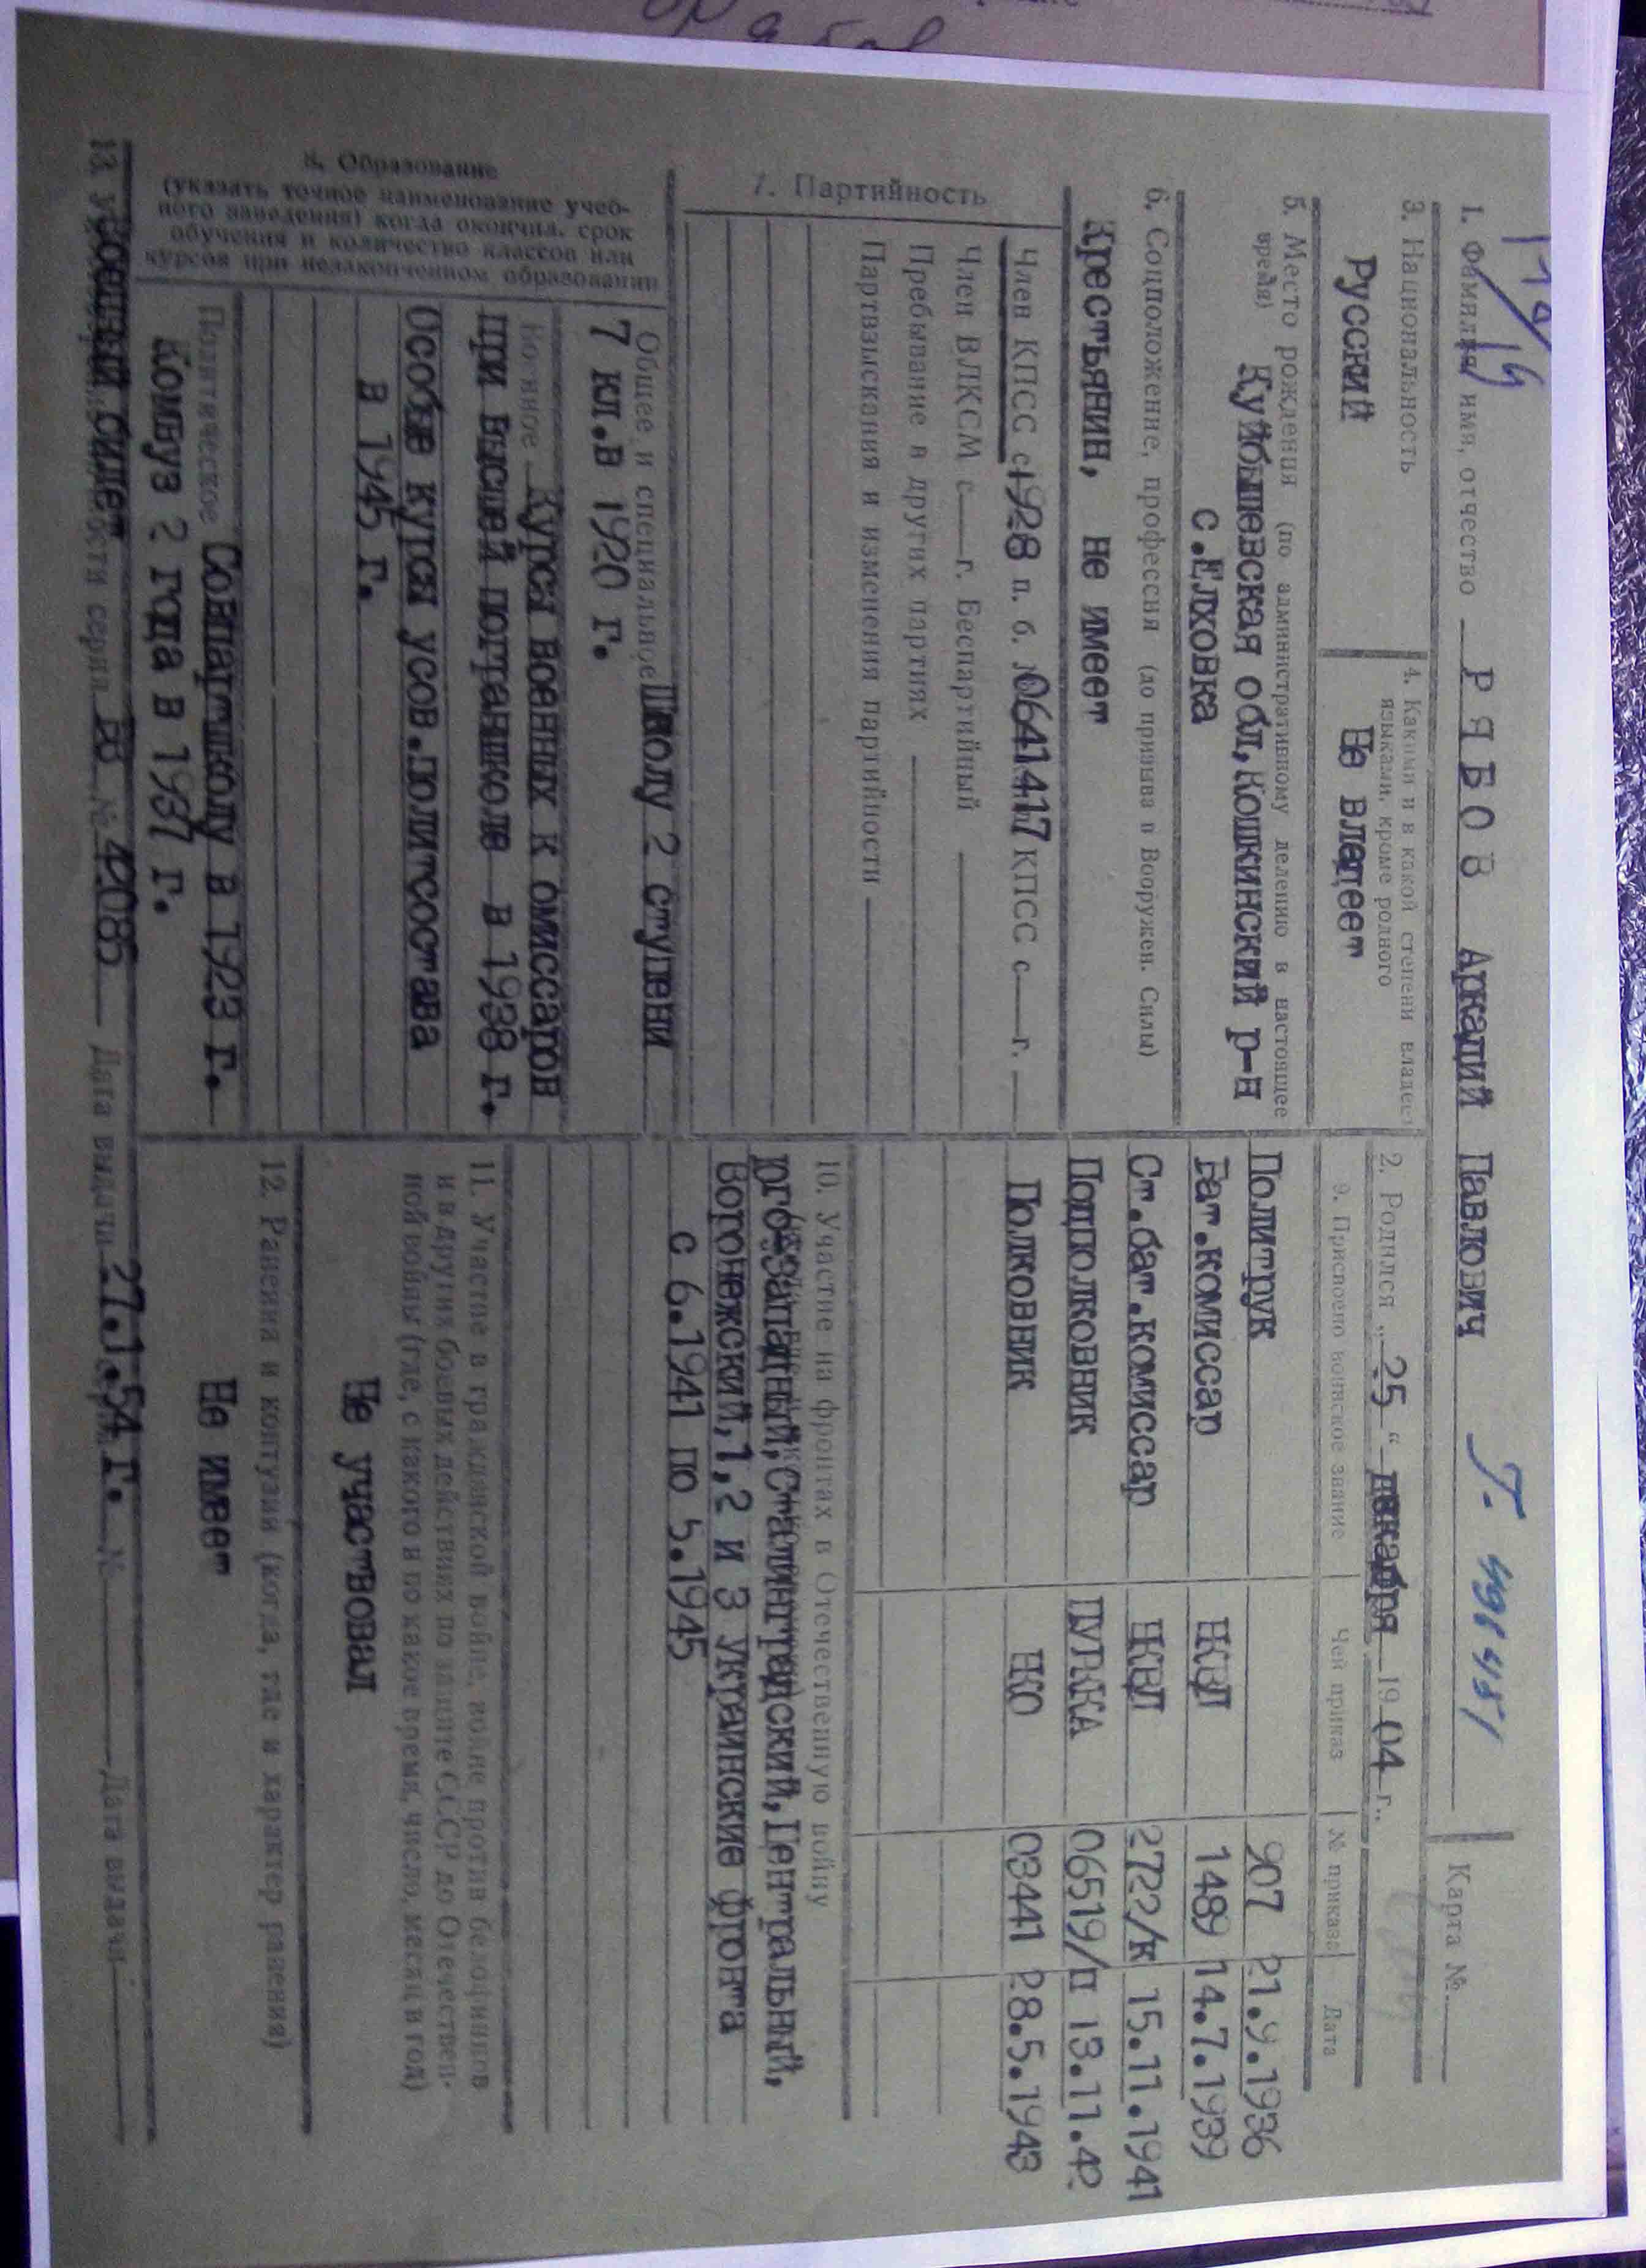 1. Фамилия, имя, отчество РЯБОВ Аркадий Павлович
Карта №
2. Родился „25“ декабря 1904 г.
3. Национальность
Русский
4. Какими и в какой степени владеет
языками, кроме родного
Не владеет
5. Место рождения (по административному делению в настоящее
время) Куйбышевская обл, Кошкинский р-н
с.Елховка
6. Соцположение, профессия (до призыва в Вооружен. Силы)
Крестьянин, не имеет
7. Партийность
Член КПСС с 1928 п. б. № 06414417 КПСС с — г.
Член ВЛКСМ с — г. Беспартийный
Пребывание в других партиях
Партвзыскания и изменения партийности
8. Образование
(указать точное наименование учеб-
ного заведения) когда окончил, срок
обучения и количество классов или
курсов при незаконченном образовании
Общее и специальное Школу 2 ступени
7 кл.в 1920 г.
Военное Курсы военных комиссаров
при высшей погранколе в 1938 г.
Особые курсы усов.политсостава
в 1945 г.
Политическое Совпартшколу в 1923 г.
Комвуз 2 года в 1937 г.
9. Присвоено воинское звание Чей приказ № приказа Дата
Политрук 907 21.9.1936
Бат.комиссар НКВД 1489 14.7.1939
Ст.бат.комиссар НКВД 2722/к 15.11.1941
Подполковник ПУРККА 06519/п 13.11.42
Полковник НКО 03441 28.5.1943
10. Участие на фронтах в Отечественную войну
Юго-Западный, Сталинградский, Центральный,
Воронежский, 1, 2 и 3 украинские фронта
с 6.1941 по 5.1945
11. Участие в гражданской войне, войне против белофиннов
и в других боевых действиях по защите СССР до Отечествен-
ной войны (где, с какого и по какое время, число, месяц и год)
Не участвовал
12. Ранения и контузии (когда, где и характер ранения)
Не имеет
13. серия № 42085 Дата выдачи 27.1.54 г. № Дата выдачи